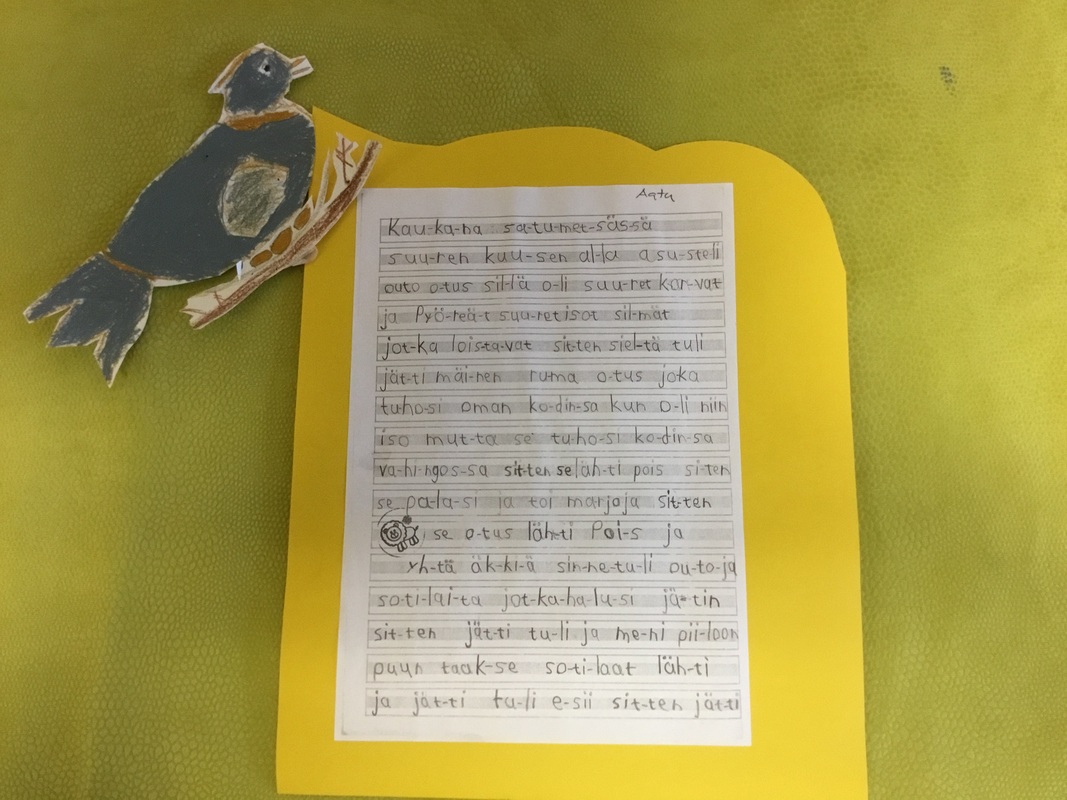 Aatu
Kau-ka-na sa-tu-met-säs-sä
suu-ren kuu-sen al-la asu-steli
outo o-tus sil-lä o-li suu-ret kar-vat
ja Pyö-reä-t suu-ret isot sil-mät
jot-ka lois-ta-vat sit-ten siel-tä tuli
jät-ti mäi-nen ruma o-tus joka
tu-ho-si oman ko-din-sa kun o-li niin
iso mut-ta se tu-ho-si ko-din-sa
va-hi-ngos-sa sit-ten se läh-ti pois si-ten
se pa-la-si ja toi marjoja sit-ten
se o-tus läh-ti Poi-s ja
yh-tä äk-ki-ä sin-ne-tu-li ou-to-ja
so-ti-lai-ta jot-ka-ha-lu-si jä-tin
sit-ten jät-ti tu-li ja me-ni pii-loon
puun taak-se so-ti-laat läh-ti
ja jät-ti tu-li e-sii sit-ten jät-ti